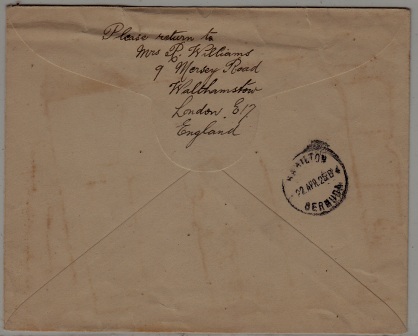 Please return to
Mrs R. Williams
9 Mersey Road
Walthamstow
London E17
England
HAMILTON
22 APR 25
BERMUDA